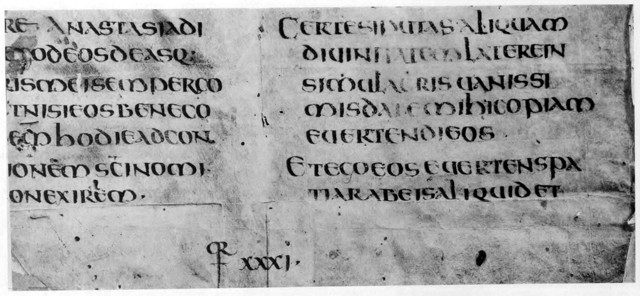 RE· ANASTASIADI
EMODEOSDEASQ:
RISMEISEMPERCO
TNISIEOSBENECO
EMHODIEADCON
IONEMSC̅INOMI·
ONEXIREM·
CERTESIPUTASALIQUAM
DIUINITATEMLATEREIN
SIMULACRISUANISSI
MISDATEMIHICOPIAM
EUERTENDIEOS·
ETEGOEOSEUERTENSPA
TIARABEISALIQUIDET
XXXI·